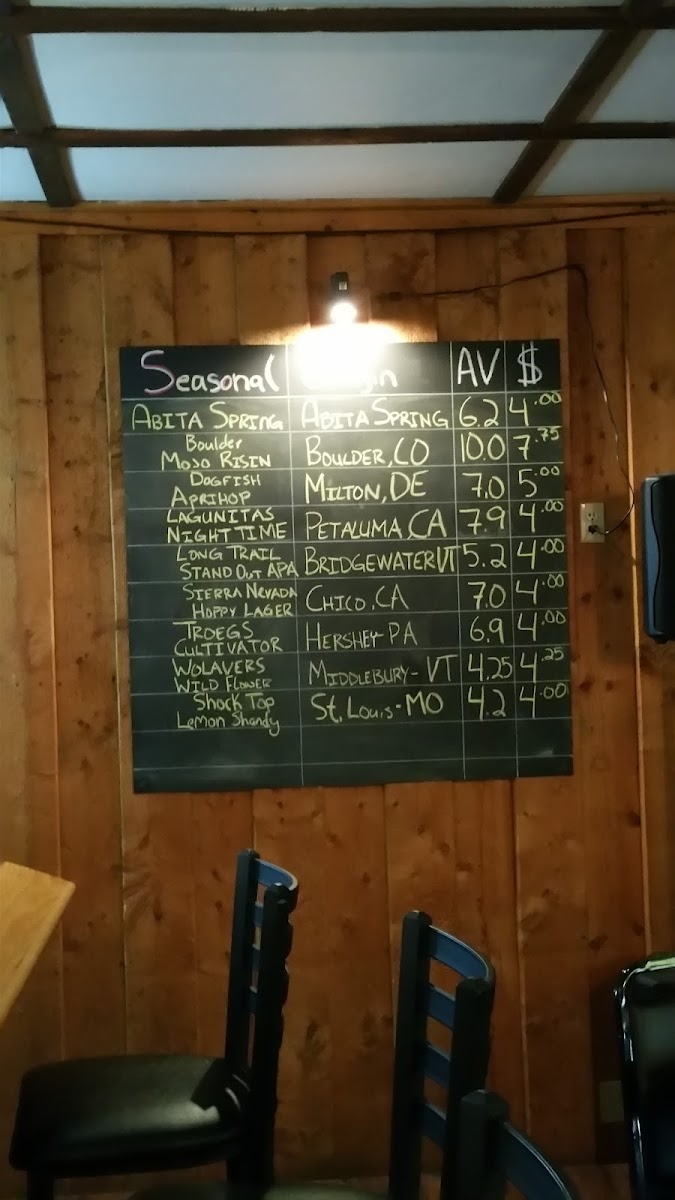 Seasonal AV $
ABITA SPRING ABITA SPRING 6.2 4.00
Boulder
MOJO RISIN BOULDER, CO 10.0 7.75
DOGFISH
APRIHOP MILTON, DE 7.0 5.00
LAGUNITAS
NIGHT TIME PETALUMA, CA 7.9 4.00
LONG TRAIL
STAND OUT APA BRIDGEWATER VT 5.2 4.00
SIERRA NEVADA
HOPPY LAGER CHICO, CA 7.0 4.00
TROEGS
CULTIVATOR HERSHEY-PA 6.9 4.00
WOLAVERS
WILD FLOWER MIDDLEBURY-VT 4.25 4.25
Shock Top
Lemon Shandy St. Louis-MO 4.2 4.00